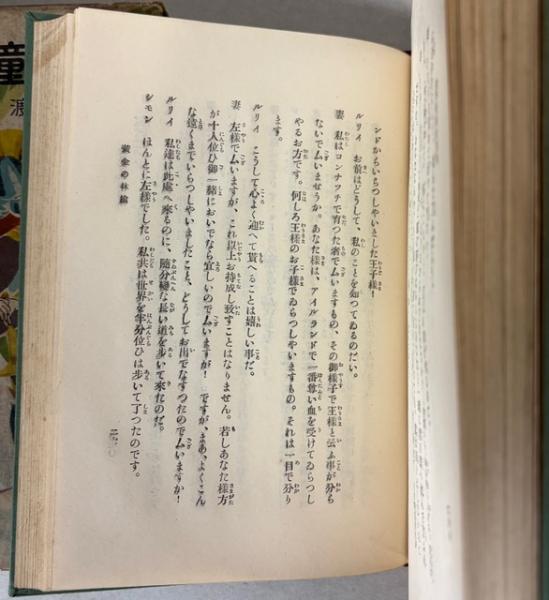 ンドからいらつしやいとした王子様！
ルリイ　お前はどうして、私のことを知つてゐるのだい。
妻　私はコンナツチで育つた者で厶いますもの、その御様子で王様と伝ふ事が分ら
ないで厶いませうか。あなた様は、アイルランドで一番尊い血を受けてゐらつし
やるお方です。何しろ王様のお子様でゐらつしやいますもの。それは一目で分り
ます。
ルリイ　こうして心よく迎へて貰へることは嬉しい事だ。
妻　左様で厶いますが、これ以上お持成し致すことはなりません。若しあなた様方
が千人位ひ御一緒においでなら宜しいので厶いますが！　ですが、まあ、よくこん
な遠くまでいらつしやいましたこと、どうしてお出でなすつたので厶いますか！
ルリイ　私達は此處へ來るのに、隨分變な長い道を歩いて來たのだ。
シモン　ほんとに左様でした。私共は世界を半分位ひは歩いて了つたのです。
黄金の林檎
童
渡